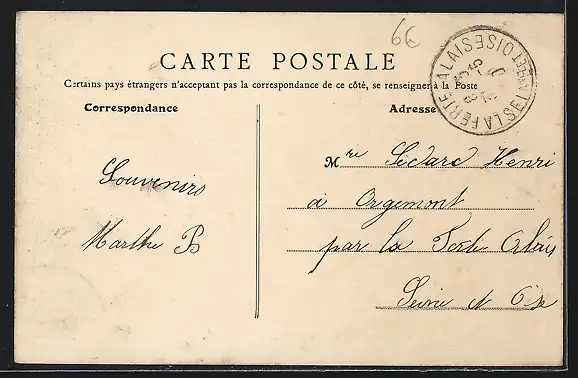 6€
CARTE POSTALE
Certains pays étrangers n'acceptant pas la correspondance de ce côté, se renseigner à la Poste
Correspondance
Adresse
LA FERTE ALAIS SEINE ET OISE
Souvenirs
Marthe B
Mre Henri
à Orgemont
par la Ferté Alais
Seine et Oise